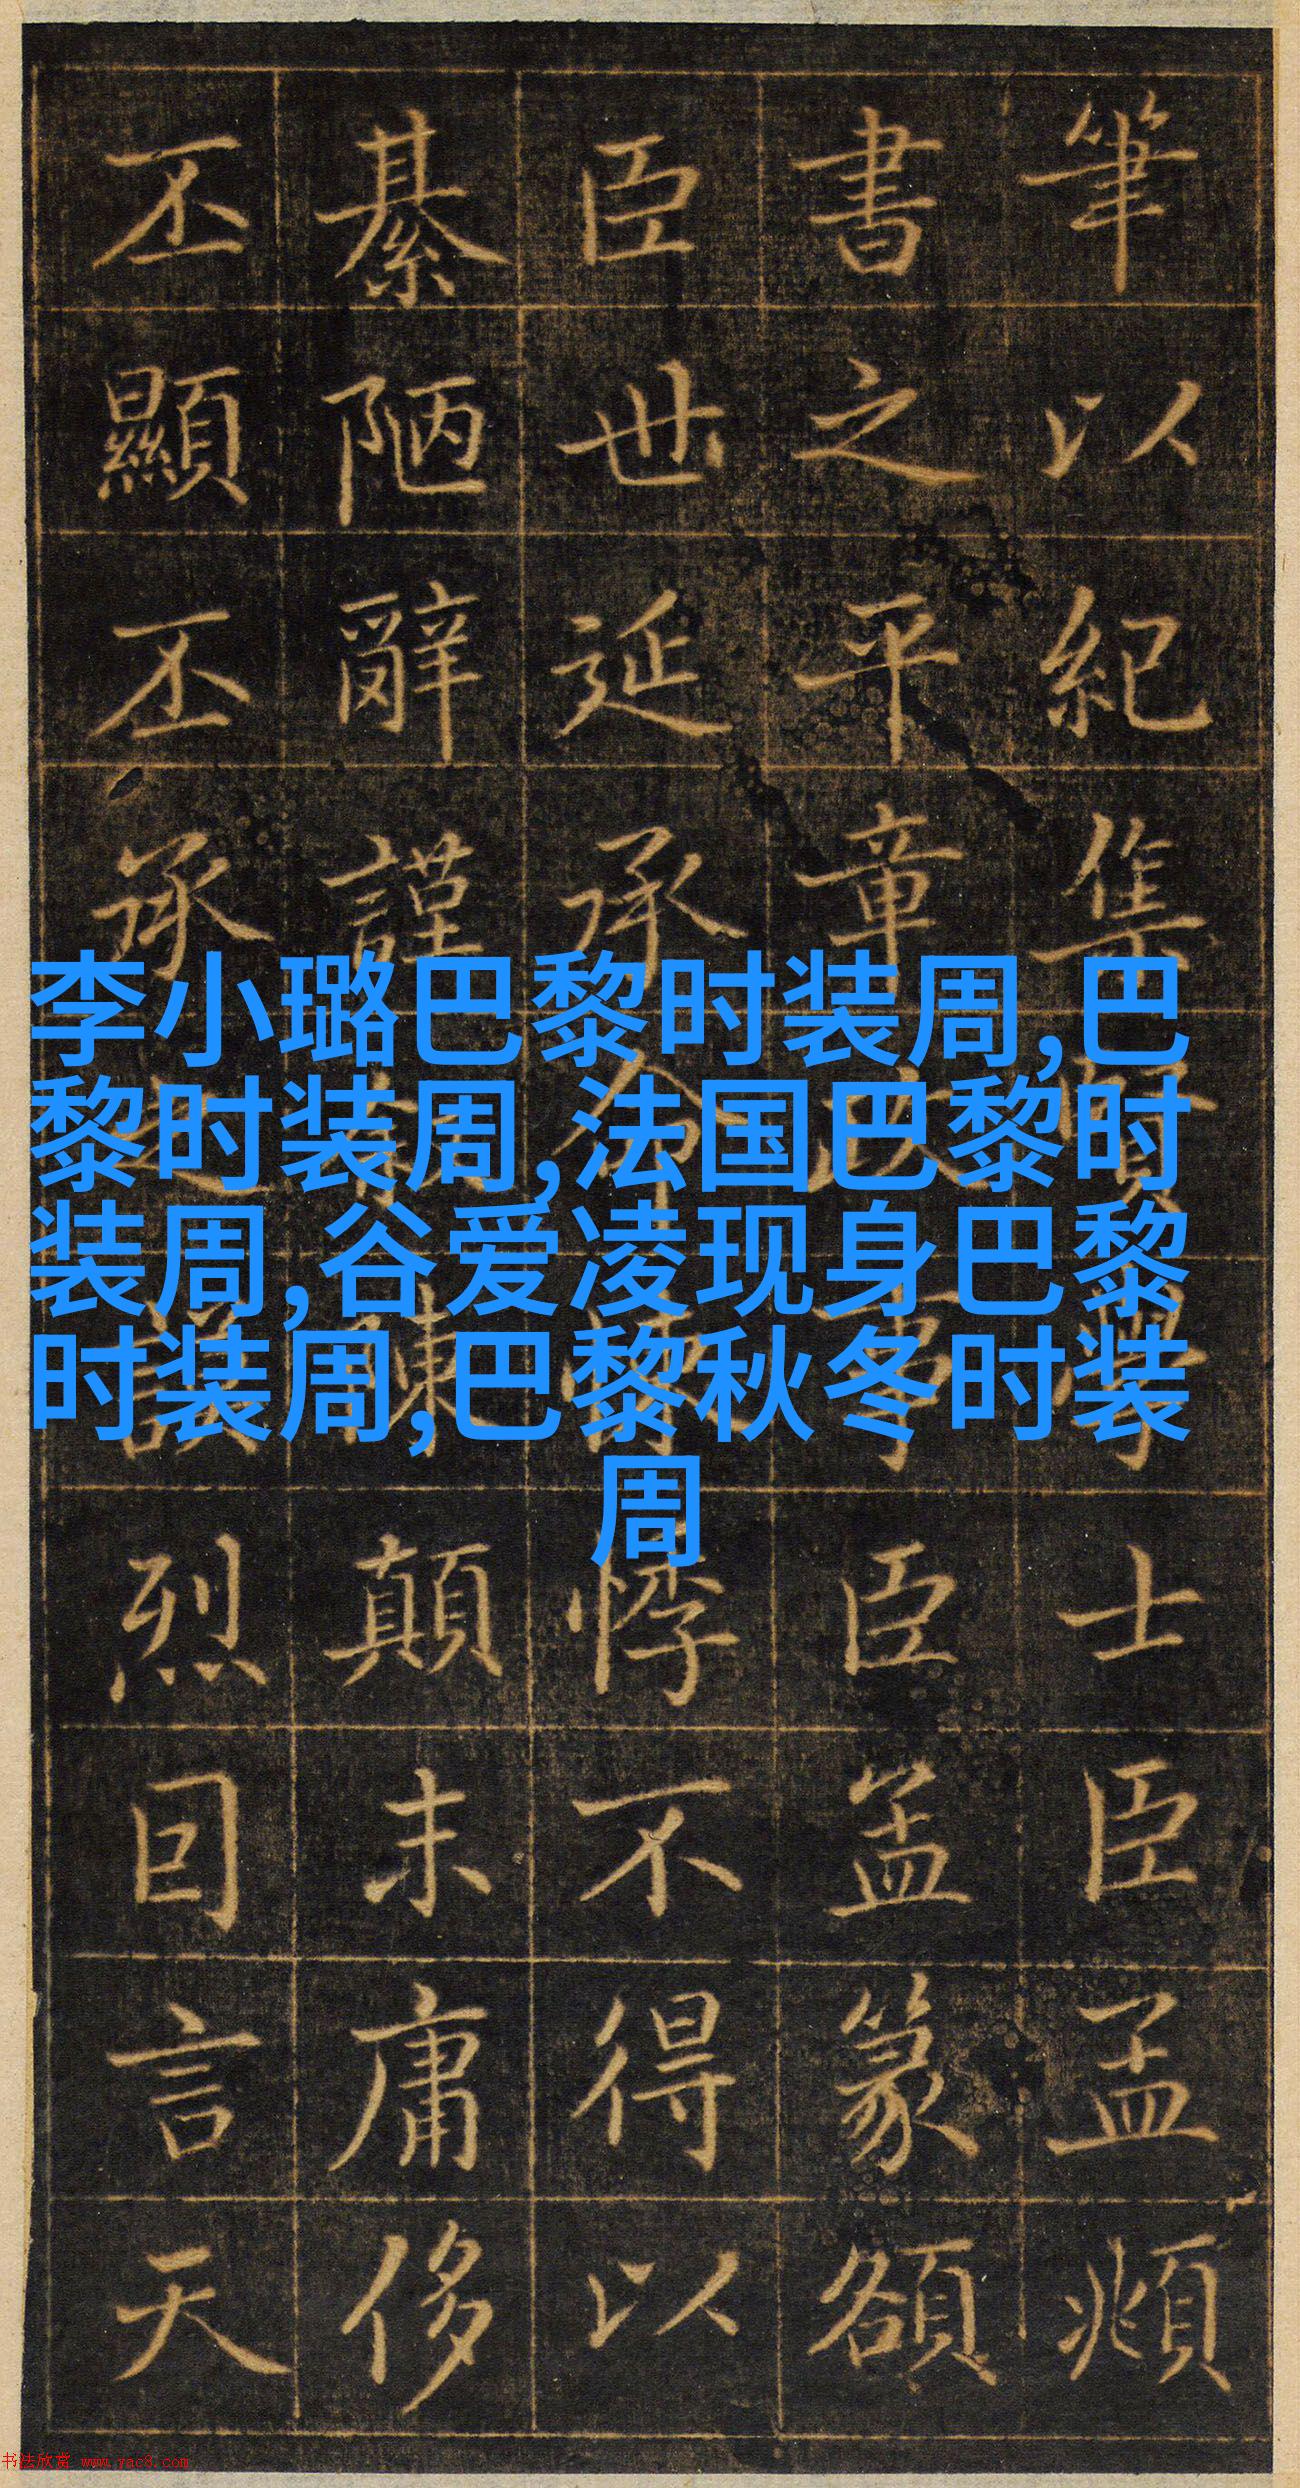 筆以紀集賢學士臣孟頫
書之平章政事臣篆額
臣世延承命悸不得以
綦陋辭謹陳顛末庸侈
丕顯丕承之謨烈囙言天
李小璐巴黎时装周,巴
黎时装周,法国巴黎时
装周,谷爱凌现身巴黎
时装周,巴黎秋冬时装
周
书法欣赏 www.yac8.com